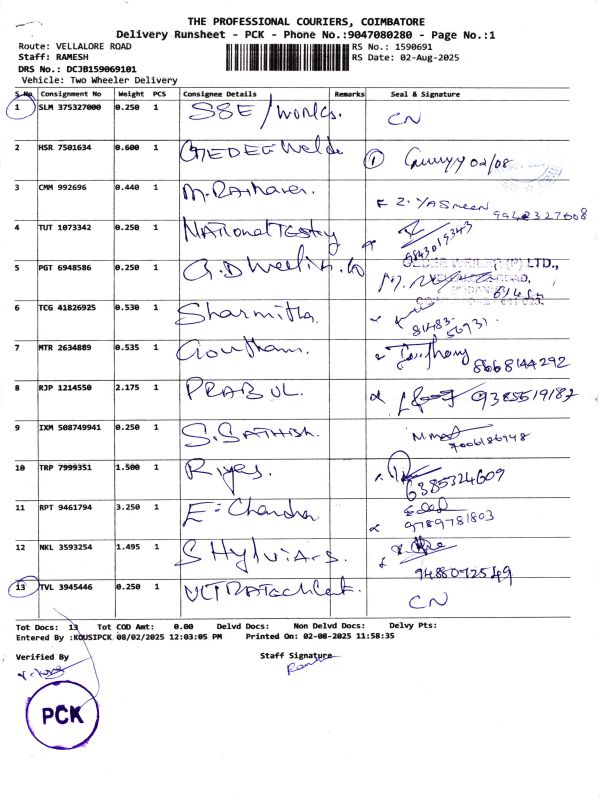 THE PROFESSIONAL COURIERS, COIMBATORE
Delivery Runsheet - PCK - Phone No.:9047080280 - Page No.:1
Route: VELLALORE ROAD RS No.: 1590691
Staff: RAMESH RS Date: 02-Aug-2025
DRS No.: DCJB159069101
Vehicle: Two Wheeler Delivery
S No Consignment No Weight PCS Consignee Details Remarks Seal & Signature
1 SLM 375327000 0.250 1 SSE/works. CN
2 HSR 7501634 0.600 1 GEDEE Welde 1 02/08
3 CMM 992696 0.440 1 M. F Z. YASmeen 9942327608
4 TUT 1073342 0.250 1 NATional 9843019343
5 PGT 6948586 0.250 1 G.D (P) LTD.,
6 TCG 41826925 0.530 1 Sharmitha. 81483-56731
7 MTR 2634889 0.535 1 Goutham. 8668144292
8 RJP 1214550 2.175 1 PRABUL. 9385519187
9 IXM 508749941 0.250 1 S. SATHISH. 7006186948
10 TRP 7999351 1.500 1 Riyes. 6385324609
11 RPT 9461794 3.250 1 E: Chandra 9789781803
12 NKL 3593254 1.495 1 SHylvia-s. 9488092549
13 TVL 3945446 0.250 1 ULTRATech CN
Tot Docs: 13 Tot COD Amt: 0.00 Delvd Docs: Non Delvd Docs: Delvy Pts:
Entered By :KOUSIPCK 08/02/2025 12:03:05 PM Printed On: 02-08-2025 11:58:35
Verified By Staff Signature
PCK